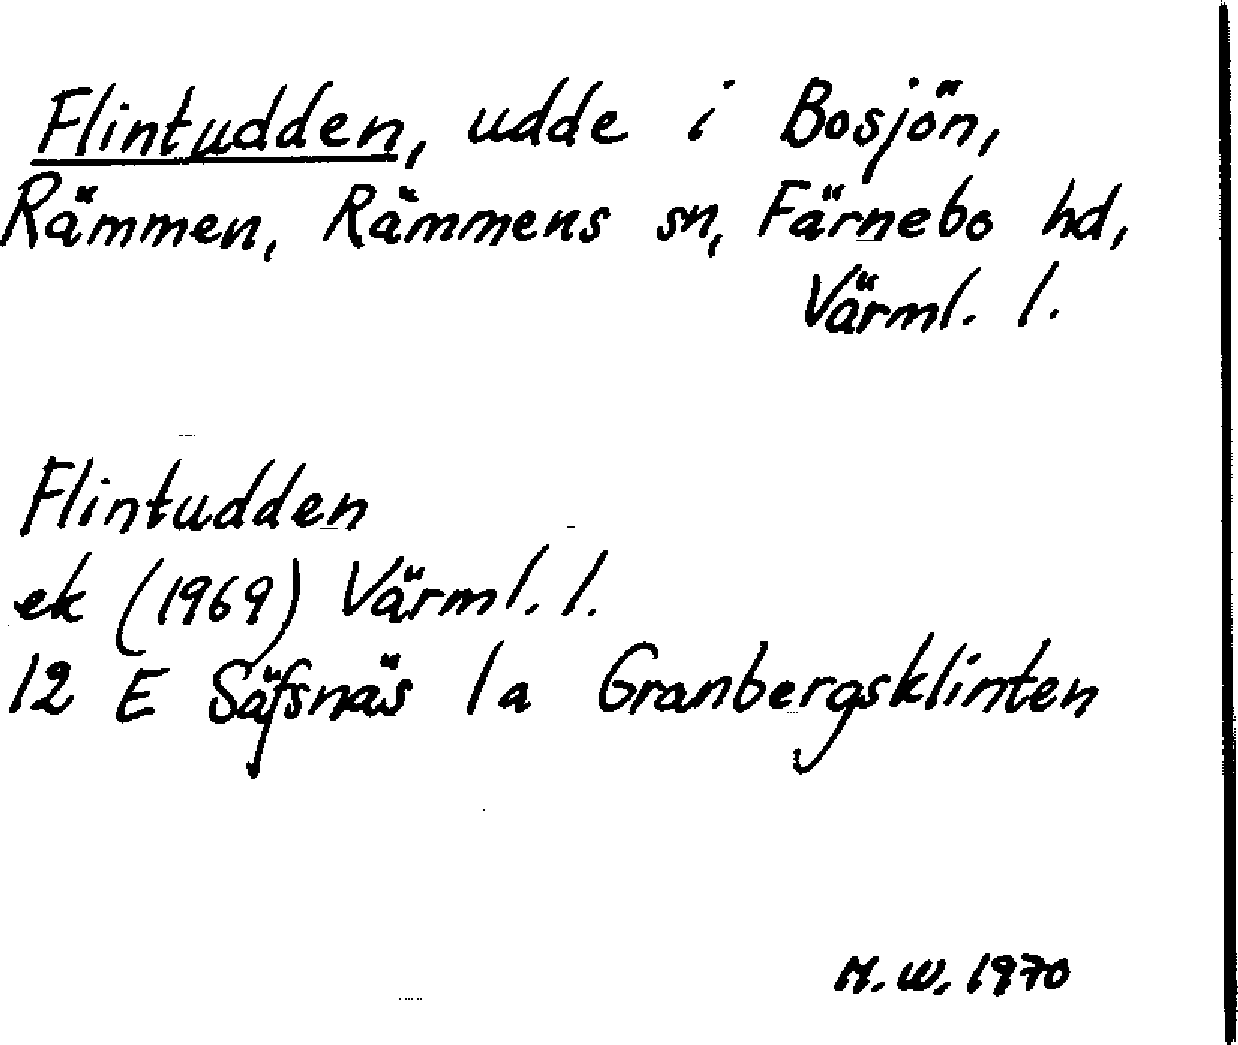 Flintudden, udde i Bosjön,
Rämmen, Rämmens sn, Färnebo hd,
Värml. l.
Flintudden
ek (1969) Värml. l.
12 E Säfsnäs 1a Granbergsklinten
M.W. 1970